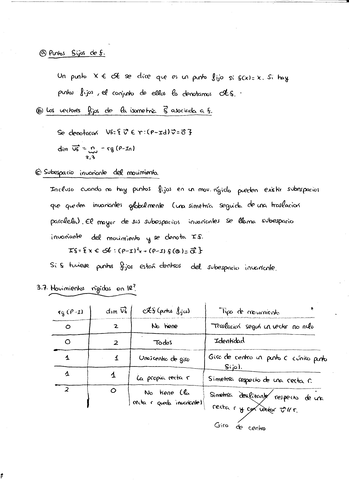 ⓐ Puntos fijos de f.
Un punto X ∈ A se dice que es un punto fijo si f(x)=x. Si hay
puntos fijos, el conjunto de ellos lo denotamos Af.
ⓑ Los vectores fijos de la isometría f⃗ asociada a f.
Se denotaran Vf={ v⃗ ∈ V: (P-Id)v⃗=0⃗ }
dim Vf = n - rg(P-In)
2,3
ⓒ Subespacio invariante del movimiento
Incluso cuando no hay puntos fijos en un mov. rígido pueden existir subespacios
que queden invariantes globalmente (una simetría seguida de una traslacion
paralela). El mayor de sus subespacios invariantes se llama subespacio
invariante del movimiento y se denota If.
If={ x ∈ A: (P-I)²x + (P-I) f(O)=0⃗ }
Si f tuviese puntos fijos están dentro del subespacio invariante.
3.7. Movimientos rígidos en R²
rg (P-I) dim Vf Af (puntos fijos) Tipo de movimiento
0 2 No tiene Traslacion según un vector no nulo
0 2 Todos Identidad
1 1 Un centro de giro Giro de centro un punto C (único punto
fijo).
1 1 La propia recta r Simetría respecto de una recta r.
2 0 No tiene (la Simetría deslizante respecto de una
recta r queda invariante) recta r y con vector v⃗ // r.
Giro de centro